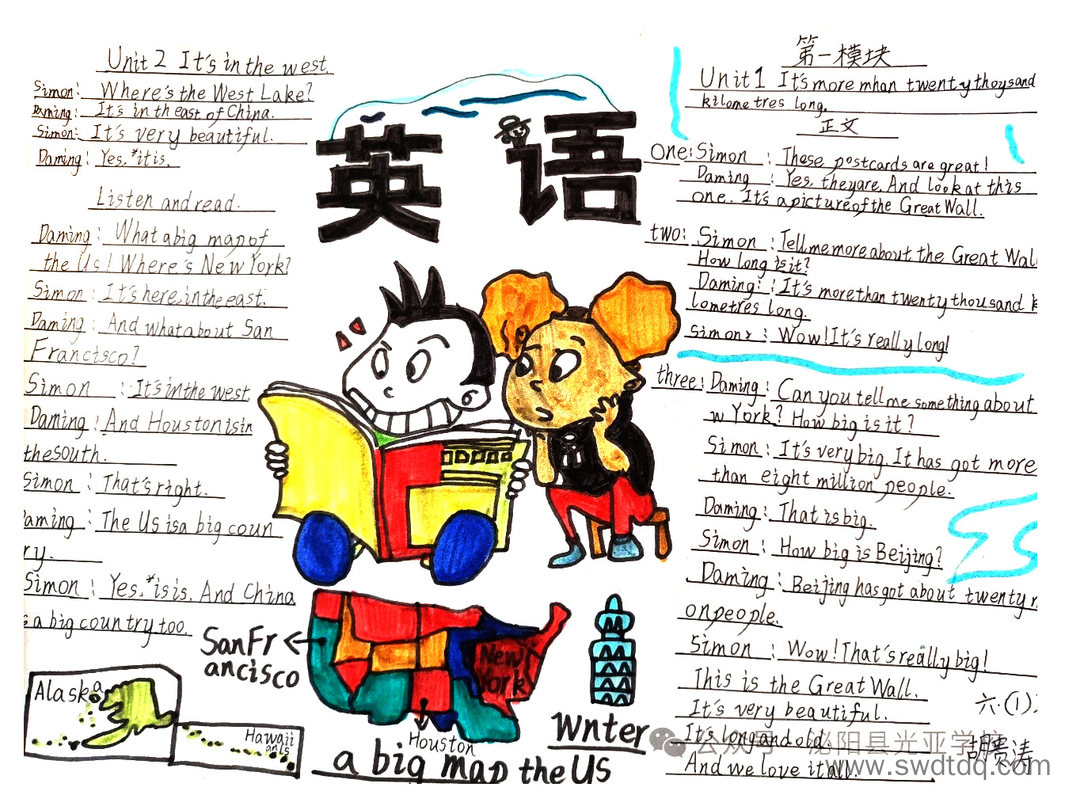 Unit 2 It's in the west
Simon: Where's the West Lake?
Daming: It's in the east of China.
Simon: It's very beautiful.
Daming: Yes.*it is.
Listen and read.
Daming: What a big map of
the Us! Where's New York?
Simon: It's here, in the east.
Daming: And what about San
Francisco?
Simon : It's in the west
Daming: And Houston is in
the south.
Simon : That's right.
Daming : The Us is a big coun
ry.
Simon: Yes.*is is. And China
a big country too.
英语
San Fr
ancisco
New
York
Houston
Alaska
Hawaii
a big map the US
Wnter
第一模块
Unit 1 It's more mhan twenty thoysand
kilometres long.
正文
One: Simon : These postcards are great!
Daming : Yes. they are. And look at this
one. It's a picture of the Great Wall.
two: Simon : Tell me more about the Great Wal
How long is it?
Daming: : It's more than twenty thousand k
lometres long.
Simon : Wow! It's really long!
three: Daming : Can you tell me something about
w York? How big is it?
Simon : It's very big. It has got more
than eight million people.
Daming: That is big.
Simon : How big is Beijing?
Daming : Beijing has got about twenty m
on people.
Simon : Wow! That's really big!
This is the Great Wall.
It's very beautiful.
It's long and old.
And we love it all.
六.(1)
公众号 · 泌阳县光亚学
www.swdtdq.com